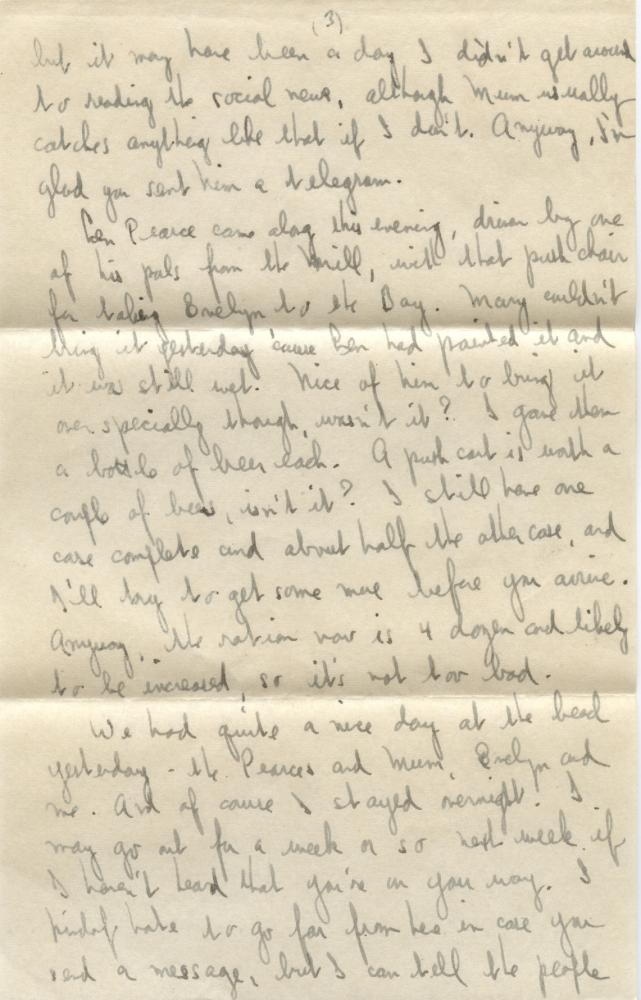 (3)
but it may have been a day I didn't get around
to reading the social news, although Mum usually
catches anything like that if I don't. Anyway, I'm
glad you sent him a telegram.
Pearce came along this evening, driven by one
of his pals from the Mill, with that push chair
for taking Evelyn to the Bay. Mary couldn't
bring it yesterday 'cause had painted it and
it was still wet. Nice of him to bring it
over specially though, wasn't it? I gave them
a bottle of beer each. A push cart is worth a
couple of beers, isn't it? I still have one
case complete and about half the other case, and
I'll try to get some more before you arrive.
Anyway, the ration now is 4 dozen and likely
to be increased, so it's not too bad.
We had quite a nice day at the beach
yesterday - the Pearces and Mum, Evelyn and
me. And of course I stayed overnight. I
may go out for a week or so next week if
I haven't heard that you're on your way. I
kindof hate to go far from here in case you
send a message, but I can tell the people